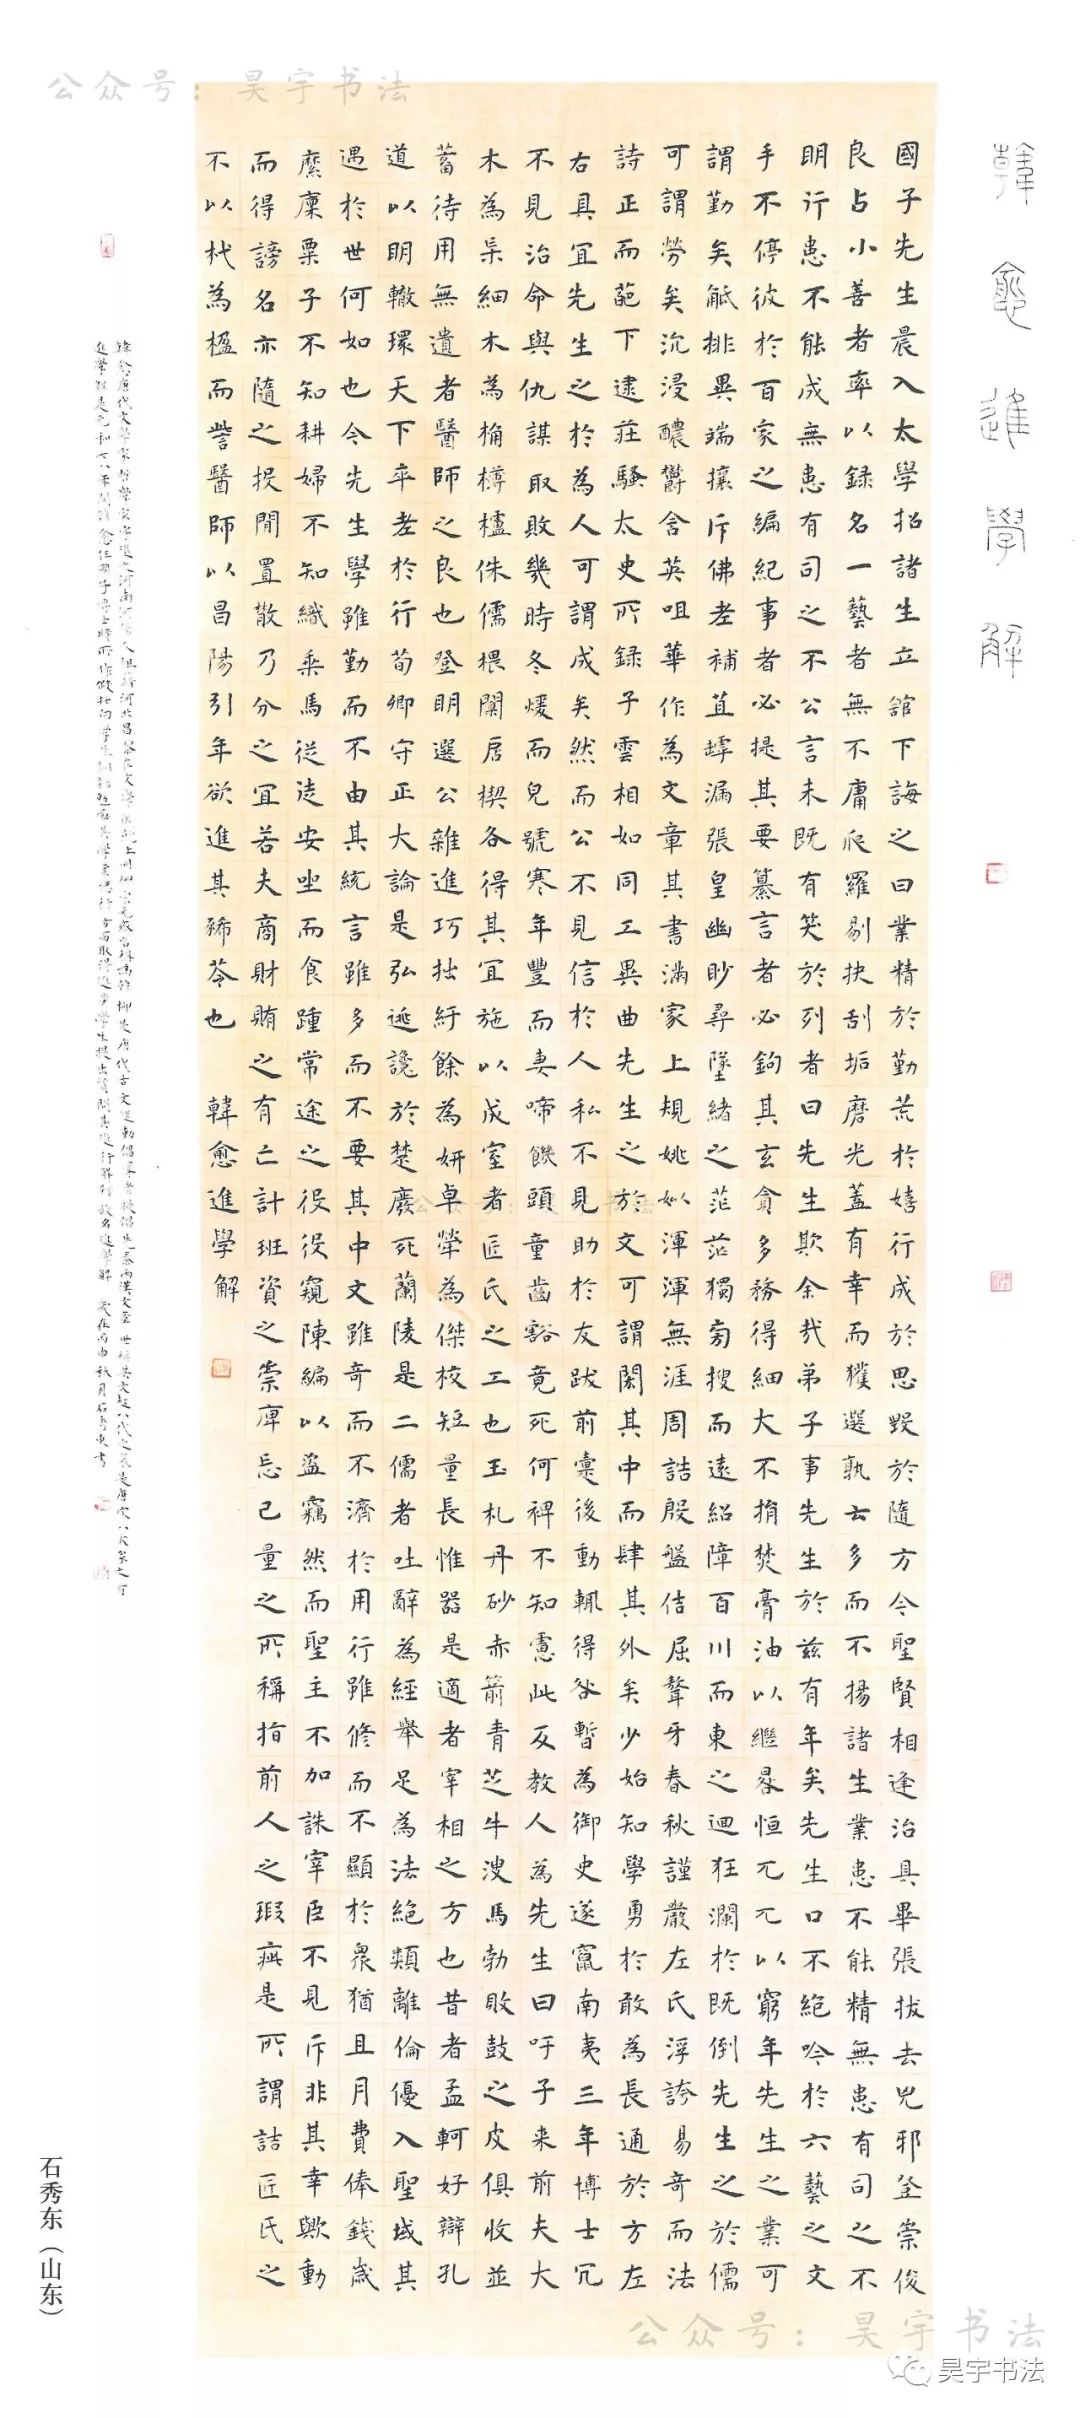 公众号：昊宇书法
韓愈進學解
國子先生晨入太學招諸生立館下誨之曰業精於勤荒於嬉行成於思毀於隨方今聖賢相逢治具畢張拔去兇邪登崇俊
良占小善者率以録名一藝者無不庸爬羅剔抉刮垢磨光蓋有幸而獲選孰云多而不揚諸生業患不能精無患有司之不
明行患不能成無患有司之不公言未既有笑於列者曰先生欺余哉弟子事先生於茲有年矣先生口不絕吟於六藝之文
手不停彼於百家之編紀事者必提其要纂言者必鉤其玄貪多務得細大不捐焚膏油以繼晷恒兀兀以窮年先生之業可
謂勤矣觝排異端攘斥佛老補苴罅漏張皇幽眇尋墜緒之茫茫獨旁搜而遠紹障百川而東之迴狂瀾於既倒先生之於儒
可謂勞矣沉浸醲鬱含英咀華作為文章其書滿家上規姚姒渾渾無涯周誥殷盤佶屈聱牙春秋謹嚴左氏浮誇易奇而法
詩正而葩下逮莊騷太史所録子雲相如同工異曲先生之於文可謂閎其中而肆其外矣少始知學勇於敢為長通於方左
右具宜先生之於為人可謂成矣然而公不見信於人私不見助於友跋前疐後動輒得咎暫為御史遂竄南夷三年博士冗
不見治命與仇謀取敗幾時冬煖而兒號寒年豐而妻啼饑頭童齒豁竟死何裨不知慮此反教人為先生曰吁子來前夫大
木為杗細木為桷欂櫨侏儒椳闑扂楔各得其宜施以成室者匠氏之工也玉札丹砂赤箭青芝牛溲馬勃敗鼓之皮俱收並
蓄待用無遺者醫師之良也登明選公雜進巧拙紆餘為妍卓犖為傑校短量長惟器是適者宰相之方也昔者孟軻好辯孔
道以明轍環天下卒老於行荀卿守正大論是弘逃讒於楚廢死蘭陵是二儒者吐辭為經舉足為法絕類離倫優入聖域其
遇於世何如也今先生學雖勤而不由其統言雖多而不要其中文雖奇而不濟於用行雖修而不顯於眾猶且月費俸錢歲
縻廩粟子不知耕婦不知織乘馬從徒安坐而食踵常途之役役窺陳編以盜竊然而聖主不加誅宰臣不見斥非其幸歟動
而得謗名亦隨之投閒置散乃分之宜若夫商財賄之有亡計班資之崇庳忘己量之所稱指前人之瑕疵是所謂詰匠氏之
不以杙為楹而訾醫師以昌陽引年欲進其豨苓也 韓愈進學解
韓愈唐代文學家哲學家
進學解是元和七八年間韓愈任國子博士時所作 故名進學解 歲在丙申秋月石秀東書
石秀东（山东）
公众号：昊宇书法
昊宇书法